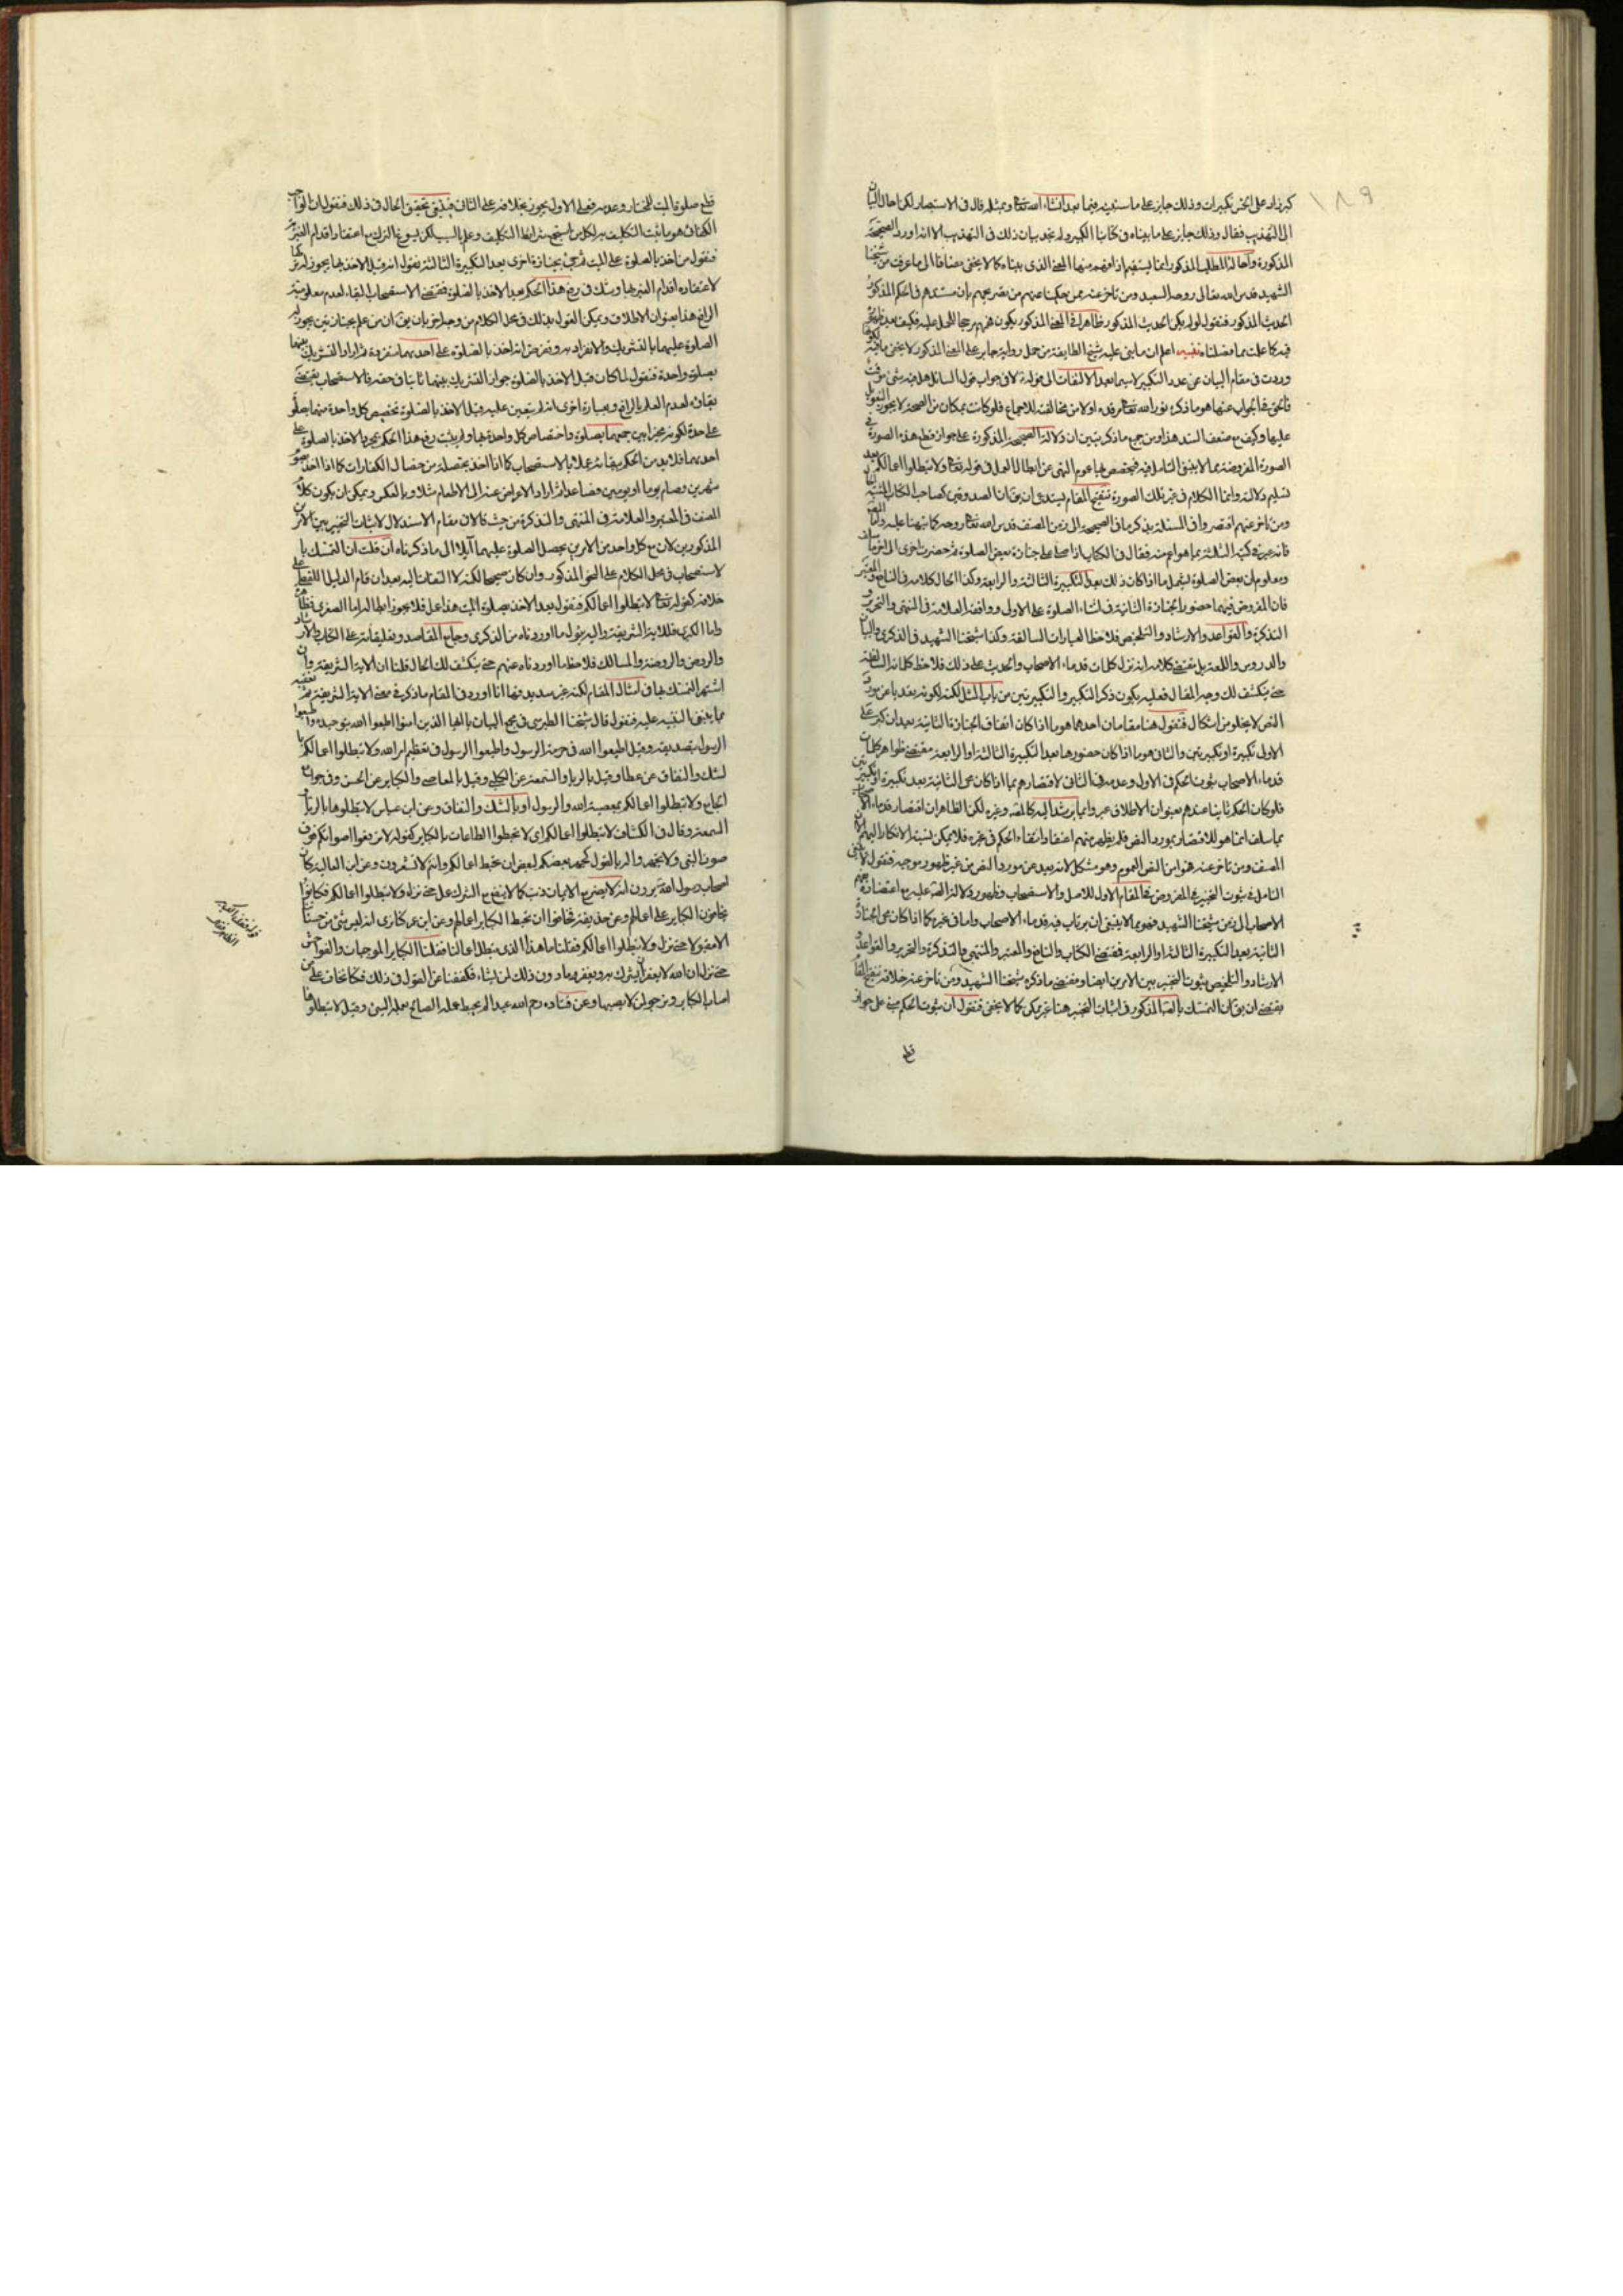 ١٨٩
كبر زاد على الخمس تكبيرات وذلك جايز على ما سنبينه فيما بعد انشاء الله تعالى وبمثله قال في الاستبصار لكن احال البيان
الى التهذيب فقال وذلك جايز على ما بيناه في كتابنا الكبير ولم نجد بيان ذلك في التهذيب الا انه اورد الصحيحة
المذكورة واحالة المطلب المذكور انما يستقيم اذا فهم منها المعنى الذي بيناه كما لا يخفى مضافا الى ما عرفت من شيخنا
الشهيد قدس الله تعالى روحه السعيد ومن تاخر عنه ممن حكينا عنهم من تصريحهم بان مستندهم في الحكم المذكور
الحديث المذكور فنقول لو لم يكن الحديث المذكور ظاهرا في المعنى المذكور يكون فهمهم مرجحا للحمل عليه فكيف بعد
فيه كما علمت مما فصلناه تنبيه اعلم ان ما بنى عليه شيخ الطايفة من حمل رواية جابر على المعنى المذكور لا يخفى ما فيه
وردت في مقام البيان عن عدد التكبير لا سيما بعد الالتفات الى قوله لا في جواب قول السائل هل فيه شئ موقت
فالحق في الجواب عنها هو ما ذكره نور الله تعالى مرقده اولا من مخالفته للاجماع فلو كانت بمكان من الصحة لا يجوز التعويل
عليها وكيف مع ضعف السند هذا ومن جميع ما ذكر تبين ان دلالة الصحيحة المذكورة على جواز قطع هذه الصورة في
الصورة المفروضة مما لا ينبغي التامل فيه فيخصص بها عموم النهي عن ابطال العمل في قوله تعالى ولا تبطلوا اعمالكم بعد
تسليم دلالته وانما الكلام في غير تلك الصورة تنقيح المقام يستدعي ان يقال ان الصدوقين كصاحب الكتاب
ومن تاخر عنهم اقتصروا في المسئلة بذكر ما في الصحيحة الى زمن المصنف قدس الله تعالى روحه كما نبهنا عليه واما
فانه عبر في كتبه الثلثة بما هو اعم منه فقال في الكتاب اذا صلى على جنازة بعض الصلوة ثم حضرت اخرى الى اخر ما سلف
ومعلوم ان بعض الصلوة يشمل ما اذا كان ذلك بعد التكبيرة الثالثة والرابعة وكذا الحال كلامه في النافع والمعتبر
فان المفروض فيهما حضور الجنازة الثانية في اثناء الصلوة على الاولى ووافقه العلامة في المنتهى والتحرير و
التذكرة والقواعد والارشاد والتلخيص فلاحظ العبارات السالفة وكذا شيخنا الشهيد في الذكرى والبيان
والدروس واللمعة بل مقتضى كلامه انه نزل كلمات قدماء الاصحاب والحديث على ذلك فلاحظ كلماته السالفة
حتى ينكشف لك وجه المقال فعليه يكون ذكر التكبير والتكبيرتين من باب المثل لكنه لكونه بعد باعن مورد
النص لا يخلو من اشكال فنقول هنا مقامان احدهما هو ما اذا كان اتفاق الجنازة الثانية بعد ان كبر على
الاولى تكبيرة او تكبيرتين والثاني هو ما اذا كان حضورها بعد التكبيرة الثالثة او الرابعة مقتضى ظواهر كلمات
قدماء الاصحاب ثبوت الحكم في الاول وعدمه في الثاني لاقتصارهم بما اذا كان مجئ الثانية بعد تكبيرة او تكبيرتين
فلو كان الحكم ثابتا عندهم بعنوان الاطلاق عبروا بما يرشد اليه كالمصنف وغيره لكن الظاهر ان اقتصار قدماء الاصحاب
بما سلف انما هو للاقتصار بمورد النص فلم يظهر منهم اعتقاد انتفاء الحكم في غيره فلا يمكن نسبة الانكار اليهم
المصنف ومن تاخر عنه فهموا من النص العموم وهو مشكل لانه بعيد عن مورد النص من غير ظهور موجبه فنقول لا ينبغي
التامل في ثبوت التخيير في المفروض في المقام الاول للاصل والاستصحاب وظهور دلالة الصحيحة عليه مع اعتضاده بفهم
الاصحاب الى زمن شيخنا الشهيد فهو مما لا ينبغي ان يرتاب فيه قدماء الاصحاب واما في غيره كما اذا كان مجئ الجنازة
الثانية بعد التكبيرة الثالثة او الرابعة فمقتضى الكتاب والنافع والمعتبر والمنتهى والتذكرة والتحرير والقواعد و
الارشاد والتلخيص ثبوت التخيير بين الامرين ايضا ومقتضى ما ذكره شيخنا الشهيد ومن تاخر عنه خلافه تنقيح المقام
يقتضي ان يقال ان التمسك بالصحيحة المذكور في اثبات التخيير هنا غير ممكن كما لا يخفى فنقول ان ثبوت الحكم مبني على جواز
قطع
قطع صلوة الميت للمختار وعدمه فعلى الاول يجوز بخلافه على الثاني فينبغي تحقيق الحال في ذلك فنقول ان الواجب
الكفائي هو ما ثبت التكليف به لكل من استجمع شرايط التكليف وعلم بالسبب لكن يسوغ الترك مع اعتقاد اقدام الغير
فنقول من اخذ بالصلوة على الميت ثم جئ بجنازة اخرى بعد التكبيرة الثالثة نقول انه قبل الاخذ بها يجوز له تركها
لاعتقاده اقدام الغير بها وشك في رفع هذا الحكم بعد الاخذ بالصلوة فمقتضى الاستصحاب البقاء لعدم معلومية
الرافع هذا بعنوان الاطلاق ويمكن القول بذلك في محل الكلام من وجه اخر بان يقال ان من علم بجنازتين يجوز له
الصلوة عليهما بالتشريك والانفراد ونفرض انه اخذ بالصلوة على احديهما منفردة ثم اراد التشريك بينهما
بصلوة واحدة فنقول لما كان قبل الاخذ بالصلوة جواز التشريك بينهما ثابتا في حقه فالاستصحاب يقتضي
بقاءه لعدم العلم بالرافع وبعبارة اخرى انه لم يتعين عليه قبل الاخذ بالصلوة تخصيص كل واحدة منهما بصلوة
على حدة لكونه مخيرا بين جمعهما بصلوة واختصاص كل واحدة بها ولم يثبت رفع هذا الحكم بمجرد الاخذ بالصلوة على
احديهما فلا بد من الحكم ببقائه عملا بالاستصحاب كما اذا اخذ بخصلة من خصال الكفارات كما اذا اخذ بصوم
شهرين وصام يوما او يومين فصاعدا ثم اراد الاعراض عنه الى الاطعام مثلا وبالعكس ويمكن ان يكون كلام
المصنف في المعتبر والعلامة في المنتهى والتذكرة من حيث قالا في مقام الاستدلال لاثبات التخيير بين الامرين
المذكورين لان مع كل واحد من الامرين يحصل الصلوة عليهما آيلا الى ما ذكرناه ان قلت ان التمسك با
لاستصحاب في محل الكلام على النحو المذكور وان كان صحيحا لكنه لا التفات اليه بعد ان قام الدليل القطعي على
خلافه كقوله تعالى لا تبطلوا اعمالكم فنقول بعد الاخذ بصلوة الميت هذا عمل فلا يجوز ابطاله اما الصغرى فظاهرة
واما الكبرى فللاية الشريفة واليه يؤل ما اوردناه من الذكرى وجامع المقاصد وتعليقاته على الكتاب والارشاد
والروض والروضة والمسالك فلاحظ ما اوردناه عنهم حتى ينكشف لك الحال قلنا ان الاية الشريفة وان
اشتهر التمسك بها في امثال المقام لكنه غير سديد فها انا اورد في المقام ما ذكر في معنى الاية الشريفة ثم تعقيبه
مما ينبغي التنبيه عليه فنقول قال شيخنا الطبرسي في مجمع البيان يا ايها الذين امنوا اطيعوا الله بتوحيده واطيعوا
الرسول بتصديقه وقيل اطيعوا الله في حرمة الرسول واطيعوا الرسول في تعظيم امر الله ولا تبطلوا اعمالكم با
لشك والنفاق عن عطا وقيل بالرياء والسمعة عن الكلبي وقيل بالمعاصي والكباير عن الحسن وفي جوامع
الجامع ولا تبطلوا اعمالكم بمعصية الله والرسول او بالشك والنفاق وعن ابن عباس لا تبطلوها بالرياء و
السمعة وقال في الكشاف لا تبطلوا اعمالكم اي لا تحبطوا الطاعات بالكباير كقوله لا ترفعوا اصواتكم فوق
صوت النبي ولا تجهروا له بالقول كجهر بعضكم لبعض ان تحبط اعمالكم وانتم لا تشعرون وعن ابي العالية كان
اصحاب رسول الله يرون انه لا يضر مع الايمان ذنب كما لا ينفع مع الشرك عمل حتى نزلت ولا تبطلوا اعمالكم فكانوا
يخافون الكباير على اعمالهم وعن حذيفة فخافوا ان تحبط الكباير اعمالهم وعن ابن عمر كنا نرى انه ليس شئ من حسناتنا
الا مقبولا حتى نزل ولا تبطلوا اعمالكم فقلنا ما هذا الذي يبطل اعمالنا فقلنا الكباير الموجبات والفواحش
حتى نزل ان الله لا يغفر ان يشرك به ويغفر ما دون ذلك لمن يشاء فكففنا عن القول في ذلك فكنا نخاف على من
اصاب الكباير ونرجو لمن لم يصبها وعن قتادة رحم الله عبدا لم يحبط عمله الصالح بعمله السيئ وقيل لا تبطلوها